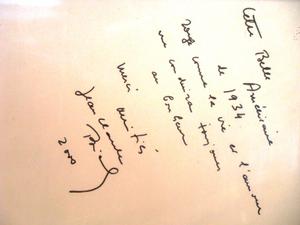 Cette Belle Américaine
de 1934
rouge comme la vie et l'amour
me conduira toujours
au bonheur
Merci Amitiés
Jean Claude
2000